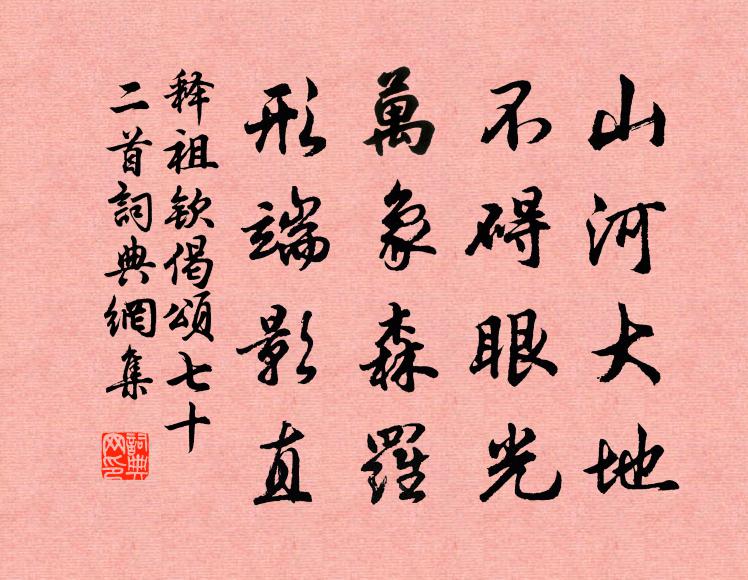 山河大地
不碍眼光
萬象森羅
形端影直
释祖钦偈頌七十
二首詞典網集
詞典网印